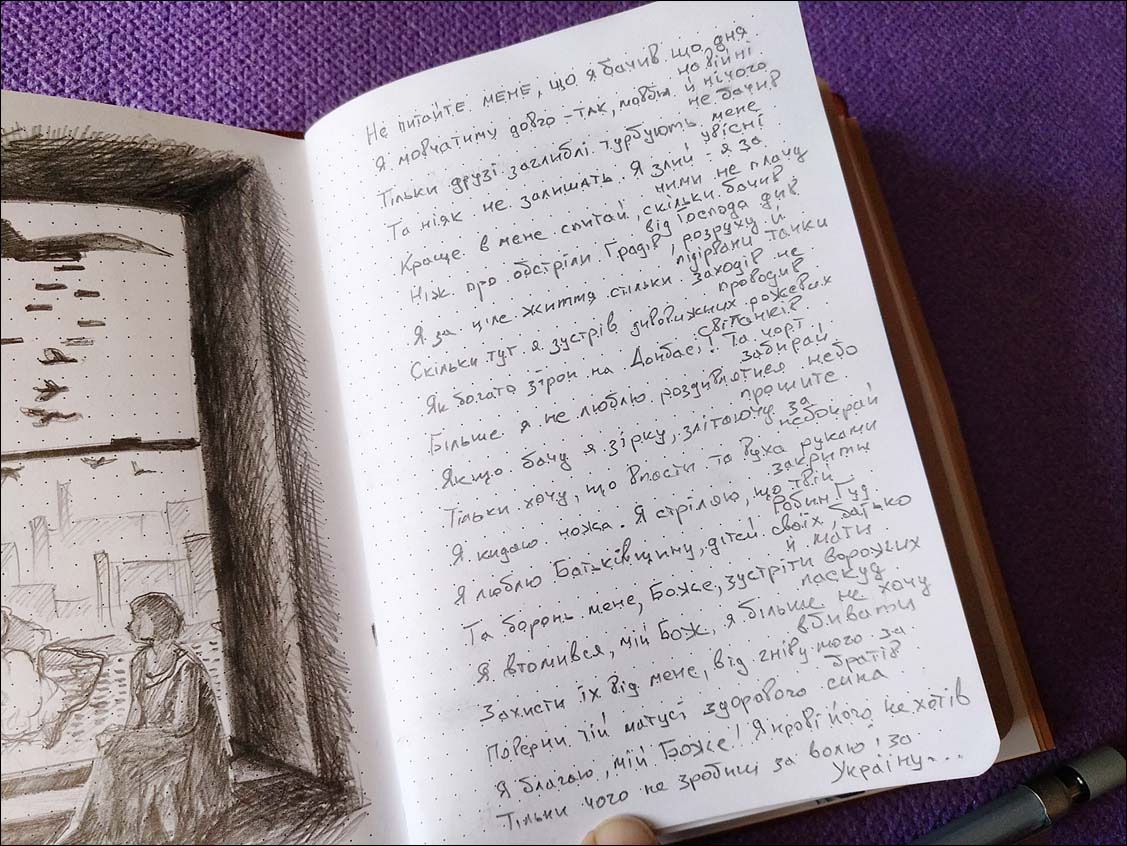 Не питайте мене, що я бачив що дня
на війні
Я мовчатиму довго - так, мовби й нічого
не бачив
Тільки друзі заглиблі турбують мене
увісні
Та ніяк не залишать. Я злий - я за
ними не плачу
Краще в мене спитай, скільки бачив
від Господа див
Ніж про обстріли Градів, розруху й
підірвані танки
Я за ціле життя стільки заходів не
проводив
Скільки тут я зустрів дивовижних рожевих
світанків
Як богато зірок на Донбасі! Та чорт
забирай,
Більше я не люблю роздивлятися небо
прошите
Якщо бачу я зірку, злітаючу за
небокрай
Тільки хочу, що впасти та вуха руками
закрити
Я кидаю ножа. Я стрілою, що твій
Робин Гуд
Я люблю Батьківщину, дітей своїх, батько
й мати
Та боронь мене, Боже, зустріти ворожих
паскуд
Я втомився, мій Бож, я більше не хочу
вбивати
Захисти їх від мене, від гніву мого за
братів
Поверни тій матусі здорового сина
Я благаю, мій Боже! Я крові його не хотів
Тільки чого не зробиш за волю і за
Україну...